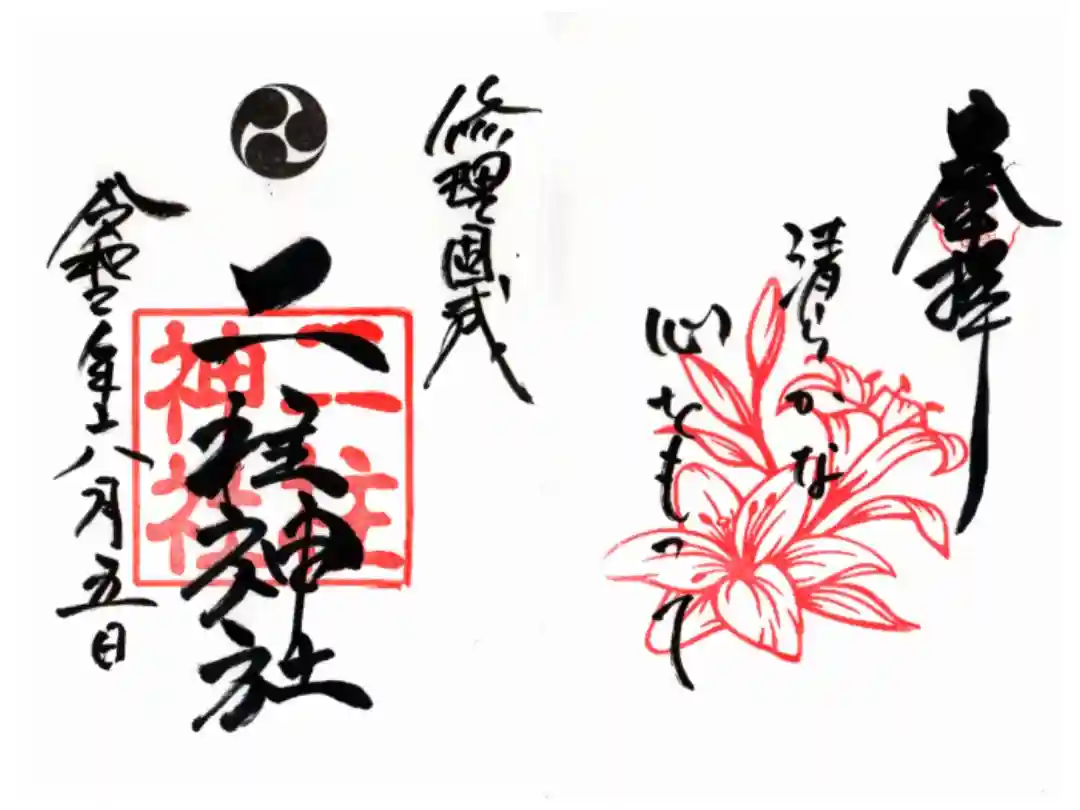 奉拝
清らかな
心をもって
修理固成
二柱神社
二柱
神社
令和年八月五日